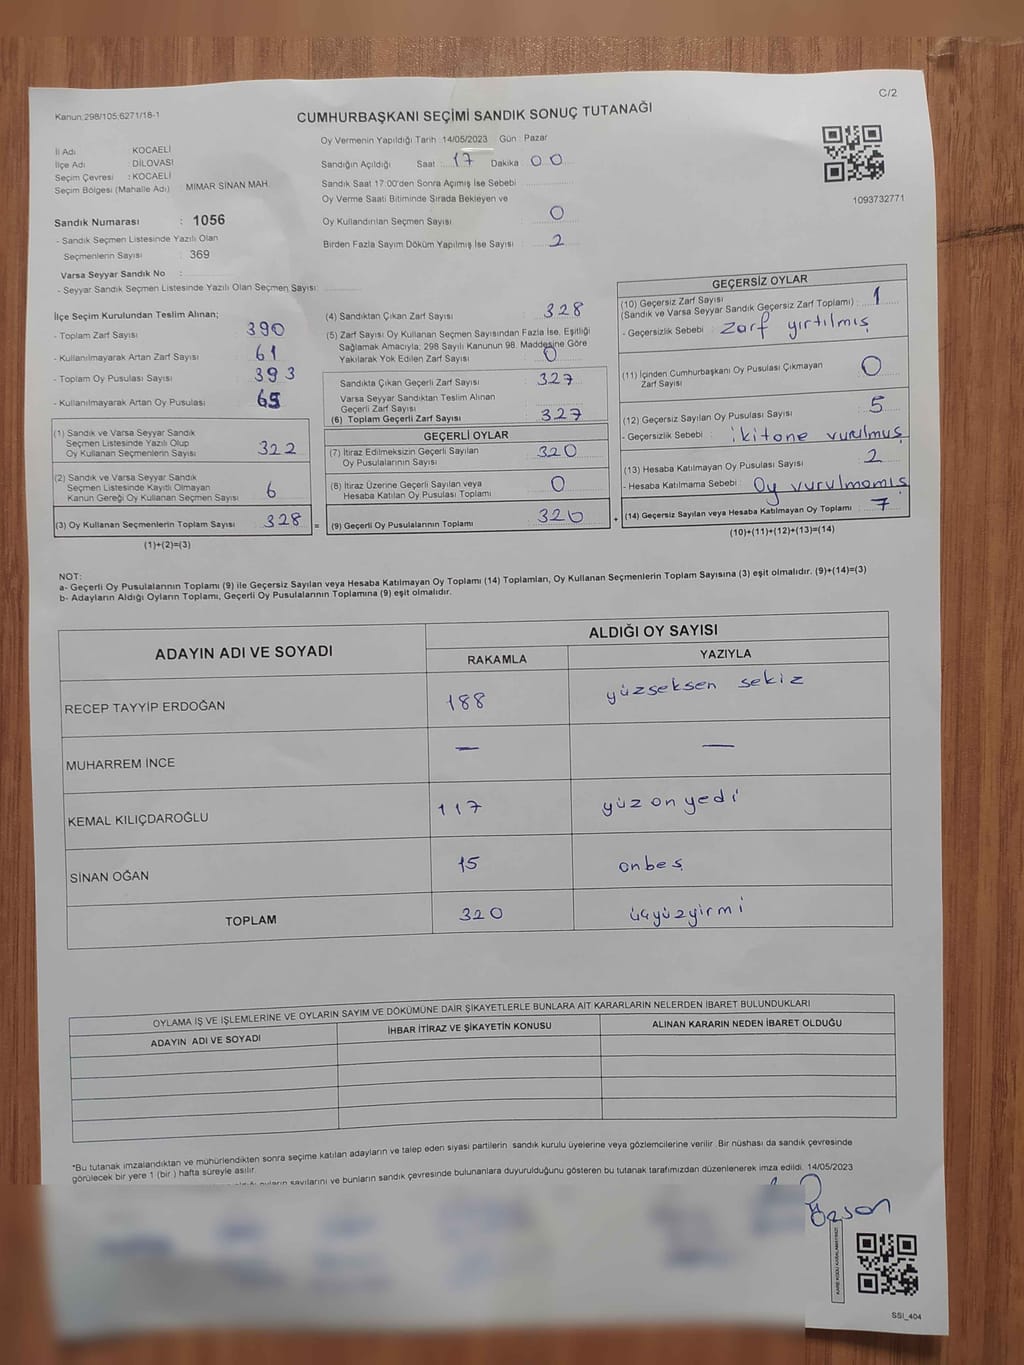 C/2
Kanun:298/105:6271/18-1
CUMHURBAŞKANI SEÇİMİ SANDIK SONUÇ TUTANAĞI
Oy Vermenin Yapıldığı Tarih :14/05/2023 Gün : Pazar
İl Adı : KOCAELİ
İlçe Adı : DİLOVASI
Seçim Çevresi : KOCAELİ
Seçim Bölgesi (Mahalle Adı) MİMAR SİNAN MAH.
Sandığın Açıldığı Saat : 17 Dakika : 00
Sandık Saat 17:00'den Sonra Açımış İse Sebebi :
Oy Verme Saati Bitiminde Sırada Bekleyen ve
Oy Kullandırılan Seçmen Sayısı : 0
Birden Fazla Sayım Döküm Yapılmış İse Sayısı : 2
1093732771
Sandık Numarası : 1056
- Sandık Seçmen Listesinde Yazılı Olan
Seçmenlerin Sayısı : 369
Varsa Seyyar Sandık No :
- Seyyar Sandık Seçmen Listesinde Yazılı Olan Seçmen Sayısı:
İlçe Seçim Kurulundan Teslim Alınan;
- Toplam Zarf Sayısı : 390
- Kullanılmayarak Artan Zarf Sayısı : 61
- Toplam Oy Pusulası Sayısı : 393
- Kullanılmayarak Artan Oy Pusulası : 65
(1) Sandık ve Varsa Seyyar Sandık
Seçmen Listesinde Yazılı Olup
Oy Kullanan Seçmenlerin Sayısı : 322
(2) Sandık ve Varsa Seyyar Sandık
Seçmen Listesinde Kayıtlı Olmayan
Kanun Gereği Oy Kullanan Seçmen Sayısı : 6
(3) Oy Kullanan Seçmenlerin Toplam Sayısı : 328 =
(1)+(2)=(3)
(4) Sandıktan Çıkan Zarf Sayısı : 328
(5) Zarf Sayısı Oy Kullanan Seçmen Sayısından Fazla İse, Eşitliği
Sağlamak Amacıyla; 298 Sayılı Kanunun 98. Maddesine Göre
Yakılarak Yok Edilen Zarf Sayısı : 0
Sandıkta Çıkan Geçerli Zarf Sayısı : 327
Varsa Seyyar Sandıktan Teslim Alınan
Geçerli Zarf Sayısı :
(6) Toplam Geçerli Zarf Sayısı : 327
GEÇERLİ OYLAR
(7) İtiraz Edilmeksizin Geçerli Sayılan
Oy Pusulalarının Sayısı : 320
(8) İtiraz Üzerine Geçerli Sayılan veya
Hesaba Katılan Oy Pusulası Toplamı : 0
(9) Geçerli Oy Pusulalarının Toplamı : 320 +
GEÇERSİZ OYLAR
(10) Geçersiz Zarf Sayısı
(Sandık ve Varsa Seyyar Sandık Geçersiz Zarf Toplamı) : 1
- Geçersizlik Sebebi : Zarf yırtılmış
(11) İçinden Cumhurbaşkanı Oy Pusulası Çıkmayan
Zarf Sayısı : 0
(12) Geçersiz Sayılan Oy Pusulası Sayısı : 5
- Geçersizlik Sebebi : ikitane vurulmuş
(13) Hesaba Katılmayan Oy Pusulası Sayısı : 2
- Hesaba Katılmama Sebebi : Oy vurulmamış
(14) Geçersiz Sayılan veya Hesaba Katılmayan Oy Toplamı : 7
(10)+(11)+(12)+(13)=(14)
NOT:
a- Geçerli Oy Pusulalarının Toplamı (9) ile Geçersiz Sayılan veya Hesaba Katılmayan Oy Toplamı (14) Toplamları, Oy Kullanan Seçmenlerin Toplam Sayısına (3) eşit olmalıdır. (9)+(14)=(3)
b- Adayların Aldığı Oyların Toplamı, Geçerli Oy Pusulalarının Toplamına (9) eşit olmalıdır.
ADAYIN ADI VE SOYADI
ALDIĞI OY SAYISI
RAKAMLA YAZIYLA
RECEP TAYYİP ERDOĞAN 188 yüzseksen sekiz
MUHARREM İNCE — —
KEMAL KILIÇDAROĞLU 117 yüz on yedi
SİNAN OĞAN 15 onbeş
TOPLAM 320 üçyüzyirmi
OYLAMA İŞ VE İŞLEMLERİNE VE OYLARIN SAYIM VE DÖKÜMÜNE DAİR ŞİKAYETLERLE BUNLARA AİT KARARLARIN NELERDEN İBARET BULUNDUKLARI
ADAYIN ADI VE SOYADI İHBAR İTİRAZ VE ŞİKAYETİN KONUSU ALINAN KARARIN NEDEN İBARET OLDUĞU
*Bu tutanak imzalandıktan ve mühürlendikten sonra seçime katılan adayların ve talep eden siyasi partilerin sandık kurulu üyelerine veya gözlemcilerine verilir. Bir nüshası da sandık çevresinde
görülecek bir yere 1 (bir ) hafta süreyle asılır.
sayılarını ve bunların sandık çevresinde bulunanlara duyurulduğunu gösteren bu tutanak tarafımızdan düzenlenerek imza edildi. 14/05/2023
SSI_404